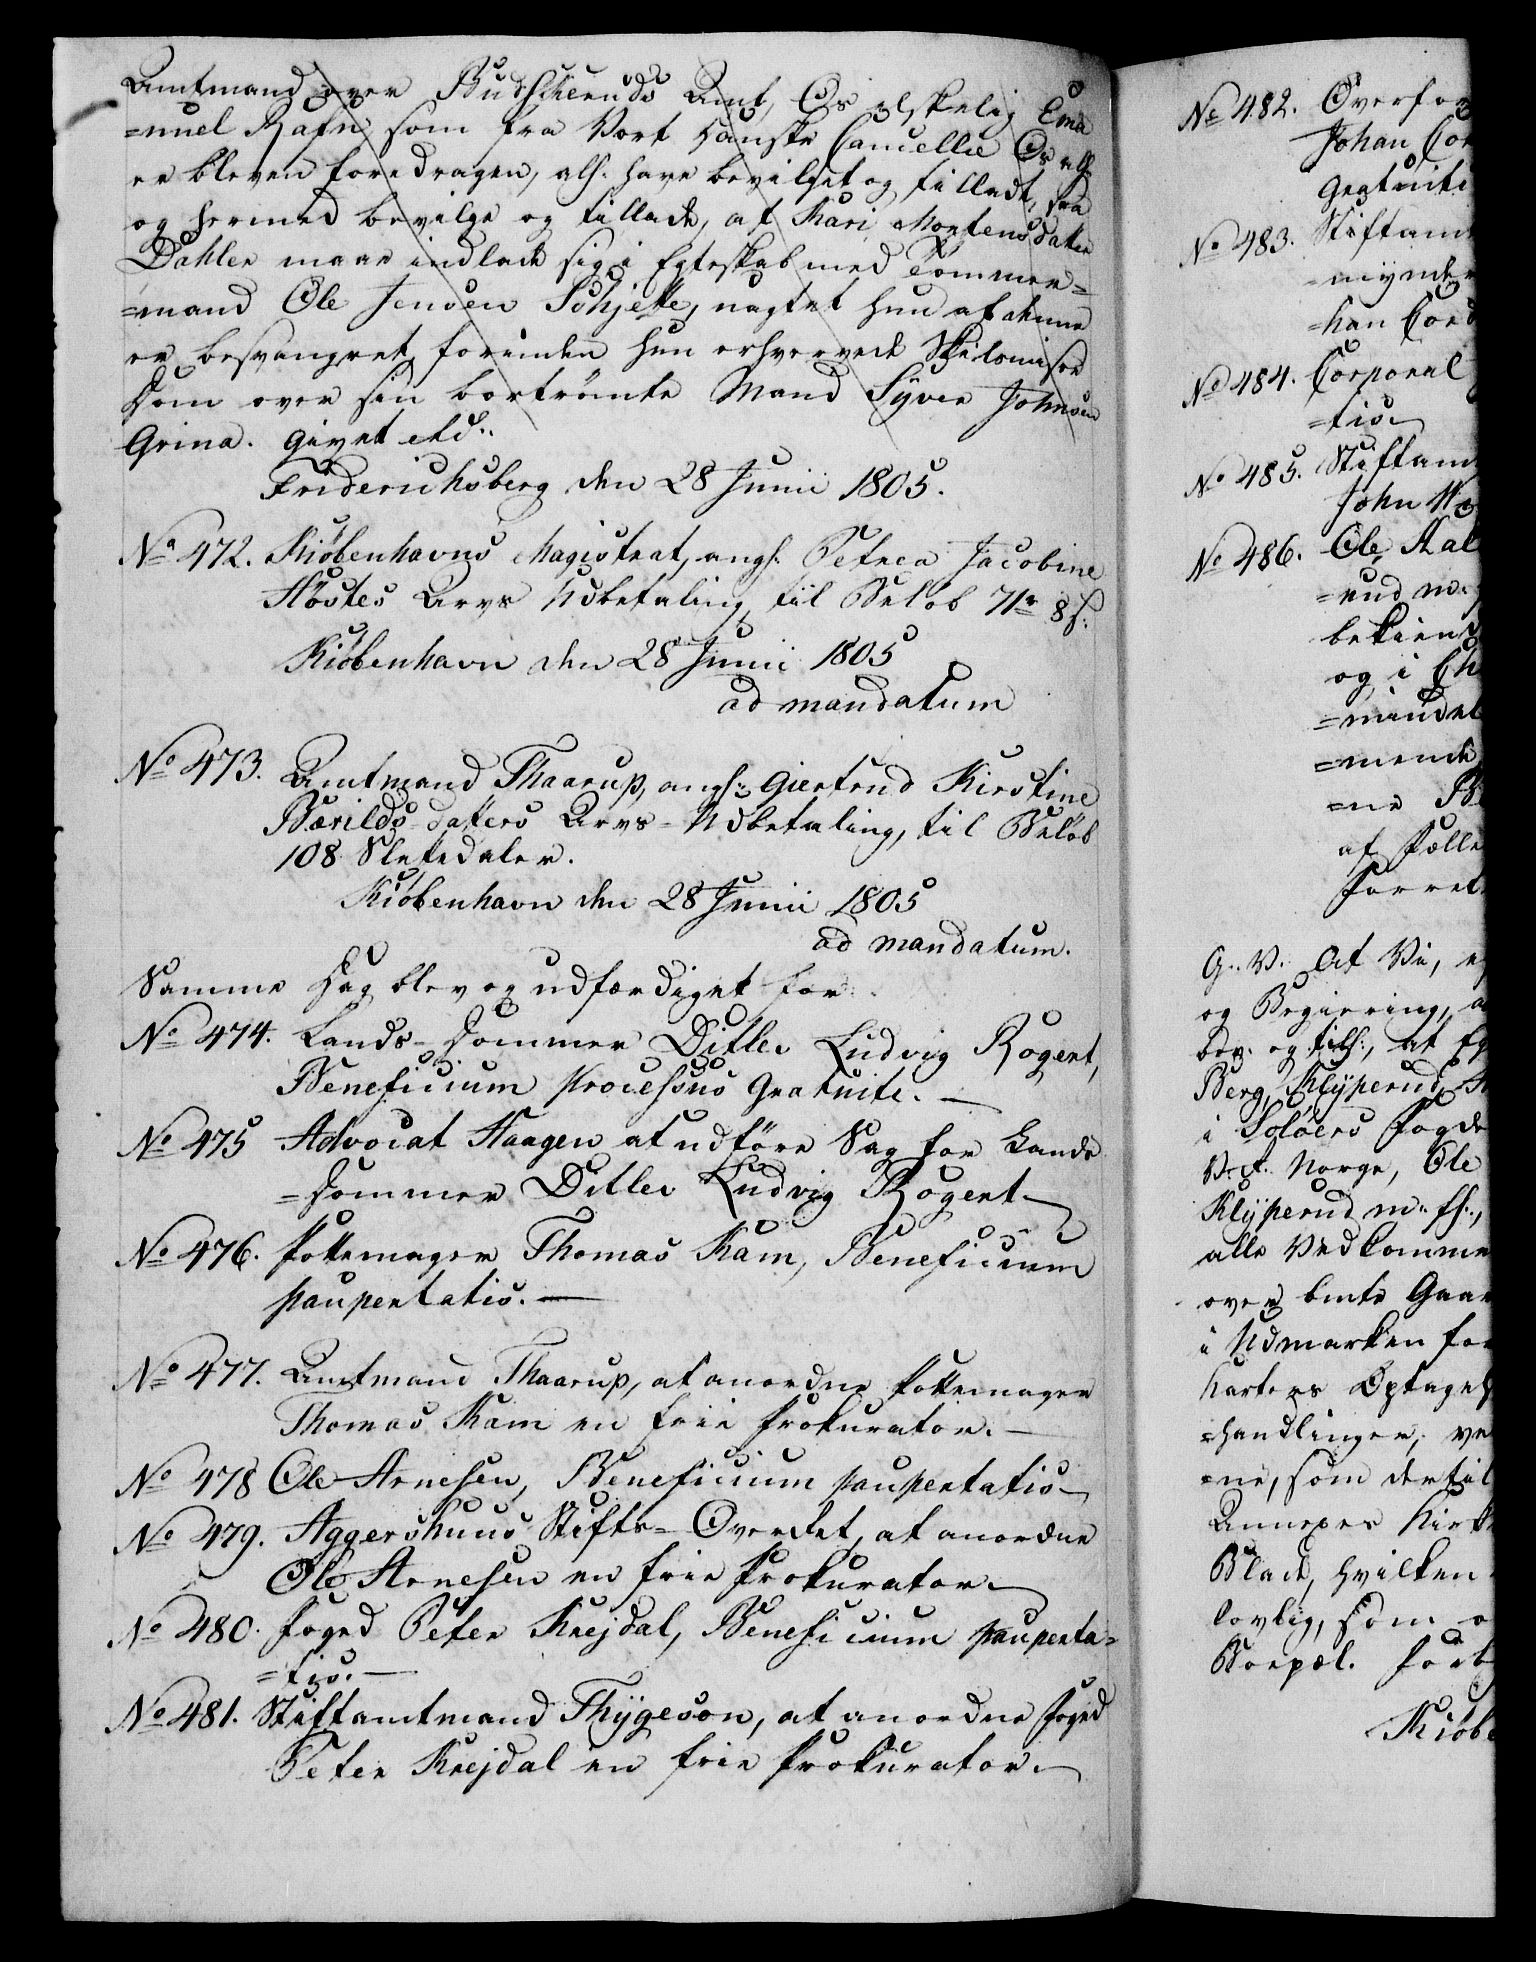 Amtmand over Budscheruds Amt, Os elskelig Ema
=nuel Rafn, som fra Vort danske Cancellie Os all:
er bleven foredragen, alf: have bevilget og tilladt, saa
og hermed bevilge og tillade, at Kari Mortensdatter
Dahler maae indlade sig i Egteskab med Tømmer=
=mand Ole Jensen Schjette, uagtet hun af denne
er besvangret, forinden hun erhvervede Skilsmisse
Dom over sin bortrømte Mand Syver Johnsen
Grina. Givet etc:
Friderichsberg den 28 Junii 1805.
No 472. Kiøbenhavns Magistrat, angl: Petrea Jacobine
Høstes Arvs Udbetaling, til Beløb 71 r 8 s:
Kiøbenhavn den 28 Junii 1805
ad mandatum
No 473. Amtmand Thaarup, angl: Giertrud Kirstine
Bærilds-datters Arvs-Udbetaling, til Beløb
108 Sletedaler.
Kiøbenhavn den 28 Junii 1805
ad mandatum.
Samme Dag blev og udfærdiget for
No 474. Lands-Dommer Ditlev Ludvig Rogert,
Beneficium processus Gratuite.
No 475 Advocat Haagen at udføre Sag for Lands
=Dommer Ditlev Ludvig Rogert
No 476. Pottemager Thomas Kam, Beneficium
paupertatis.
No 477. Amtmand Thaarup, at anordne Pottemager
Thomas Kam en frie Prokurator.
No 478 Ole Arnesen, Beneficium paupertatis
No 479. Aggershuus Stifts-Overret, at anordne
Ole Arnesen en frie Prokurator
No 480. Foged Peter Krejdal, Beneficium pauperta=
=tis.
No 481. Stiftamtmand Thygeson, at anordne Foged
Peter Krejdal en frie Prokurator.
No 482. Overfor
Johan Cor
Gratuite
No 483. Stiftamt
=mynder
=han Cord
No 484. Corporal
=tis
No 485. Stiftam
John
No 486. Ole Aal
=rud m:
bekiend
og i Ch
=mindel
=mende
=ne B
af Fælle
Forret
G. V. At Vi, e
og Begiering, a
bev: og till:, at Eg
Berg, Klyperud,
i Soløers Fogde
V. R. Norge, Ole
Klyperud m: fl:,
alle Vedkomme
over bmte Gaar
i Udmarken for
Karters Optagel
=handlinger, ve
=ne, som dertil
Annexes Kirke
Blad, hvilken
lovlig, som o
Vorpæl. Forb
Kiøbe